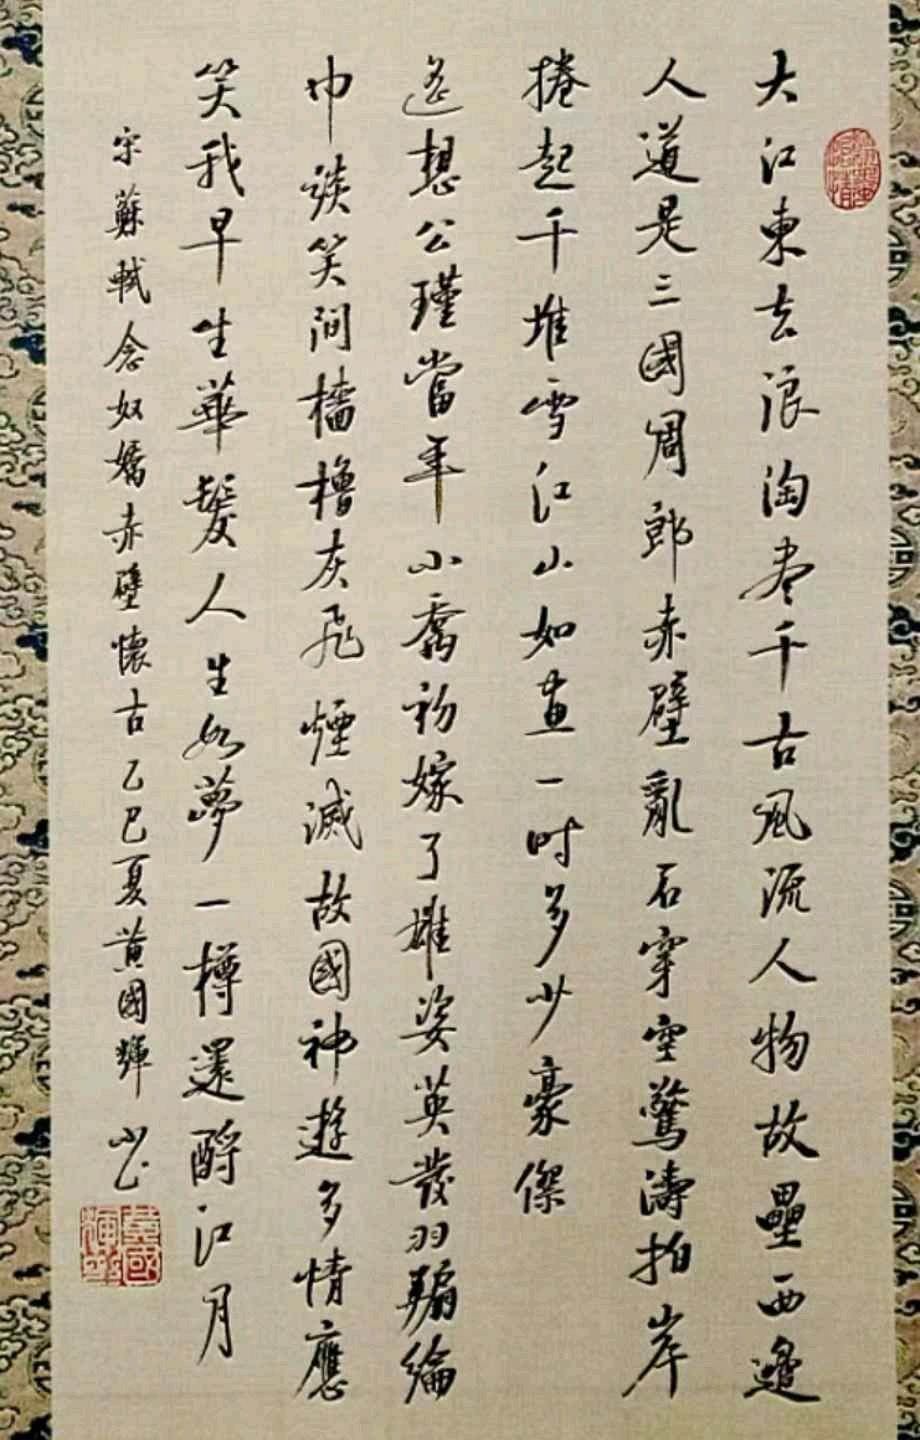 大江東去浪淘盡千古風流人物故壘西邊
人道是三國周郎赤壁亂石穿空驚濤拍岸
捲起千堆雪江山如畫一時多少豪傑
遙想公瑾當年小喬初嫁了雄姿英發羽扇綸
巾談笑間檣櫓灰飛煙滅故國神遊多情應
笑我早生華髮人生如夢一樽還酹江月
宋蘇軾念奴嬌赤壁懷古乙巳夏黃國輝